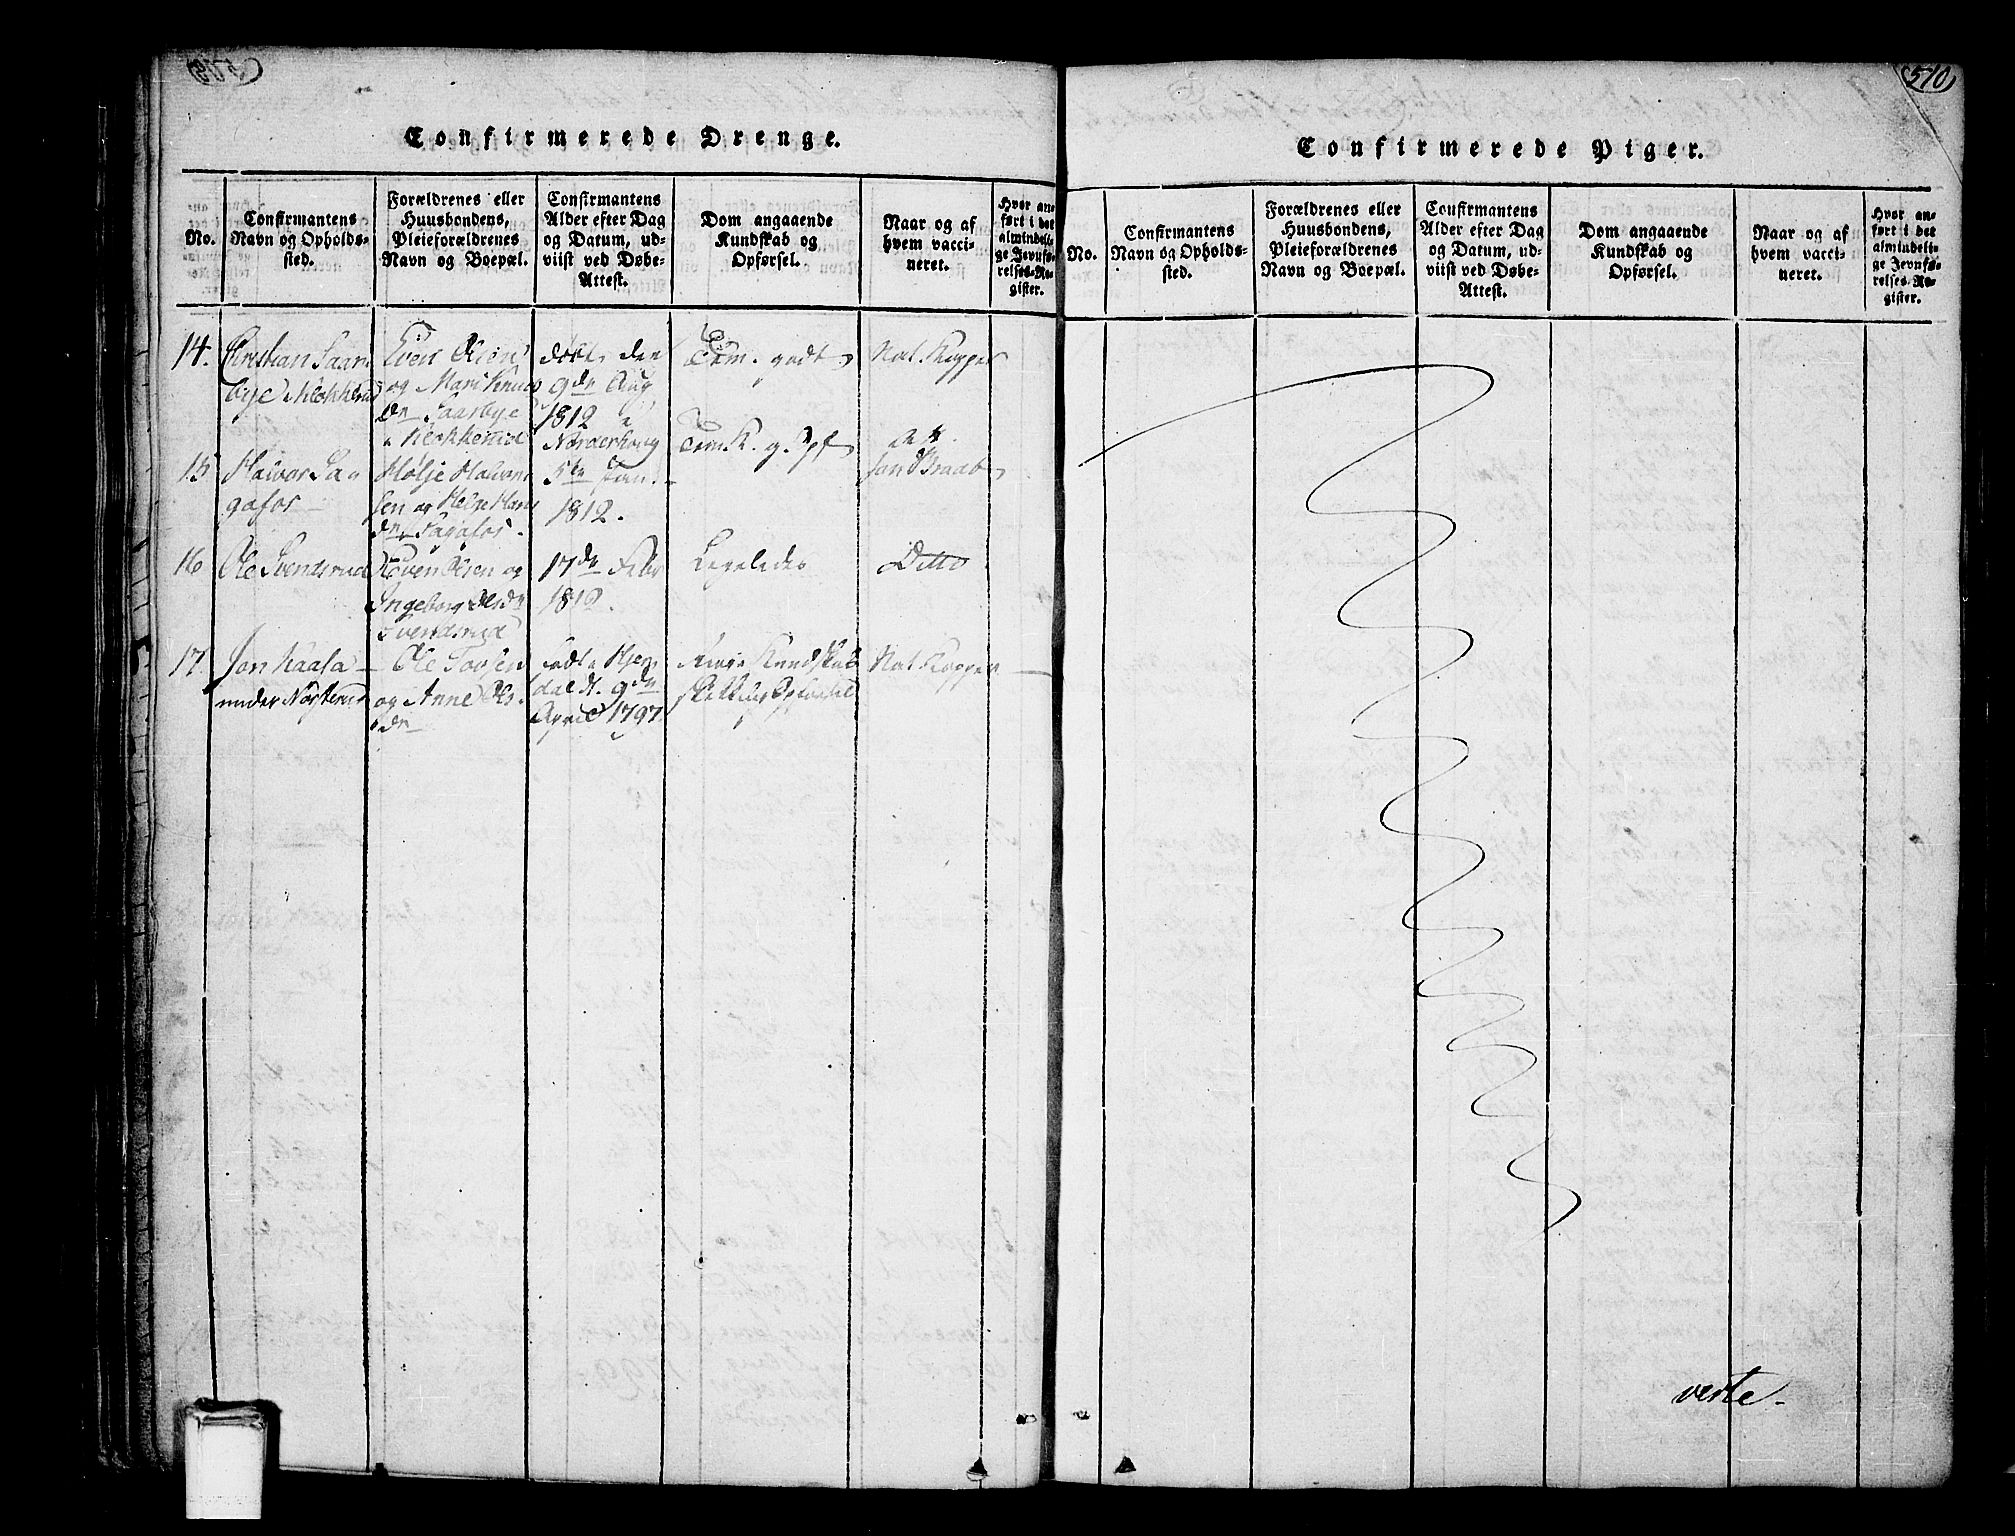 510
Confirmerede Drenge.
No.
Confirmantens
Navn og Opholds-
sted.
Forældrenes eller
Huusbondens,
Pleieforældrenes
Navn og Boepæl.
Confirmantens
Alder efter Dag
og Datum, ud-
viist ved Døbe-
Attest.
Dom angaaende
Kundskab og
Opførsel.
Naar og af
hvem vacci-
neret.
Hvor an-
ført i det
almindeli-
ge Jevnfø-
relses-Re-
gister.
14.
Christian Saars
bye
Even Olsen
og Mari Knuds
dn Saarbye
døbt den
9de Aug
1812
Norderhoug
Tem. godt
Nat. Kopper
15
Halvor Sa
gafos
Holje Halvor
sen og Helge Hans
dn Sagafos.
5te Jan.
1812.
Tem. K. g. Opf
16
Ole Svendsrud
Even Olsen og
Ingeborg Olsdn
Svendsrud
17de Febr
1812.
Ligeledes
Ditto
17.
Jon Kaasa
under
Ole
og Anne Ols
dn
født i Hjer
dal d. 9de
April 1797
Kundskab
Nat. Kopper
Confirmerede Piger.
No.
Confirmantens
Navn og Opholds-
sted.
Forældrenes eller
Huusbondens,
Pleieforældrenes
Navn og Boepæl.
Confirmantens
Alder efter Dag
og Datum, ud-
viist ved Døbe-
Attest.
Dom angaaende
Kundskab og
Opførsel.
Naar og af
hvem vacci-
neret.
Hvor an-
ført i det
almindeli-
ge Jevnfø-
relses-Re-
gister.
verte.